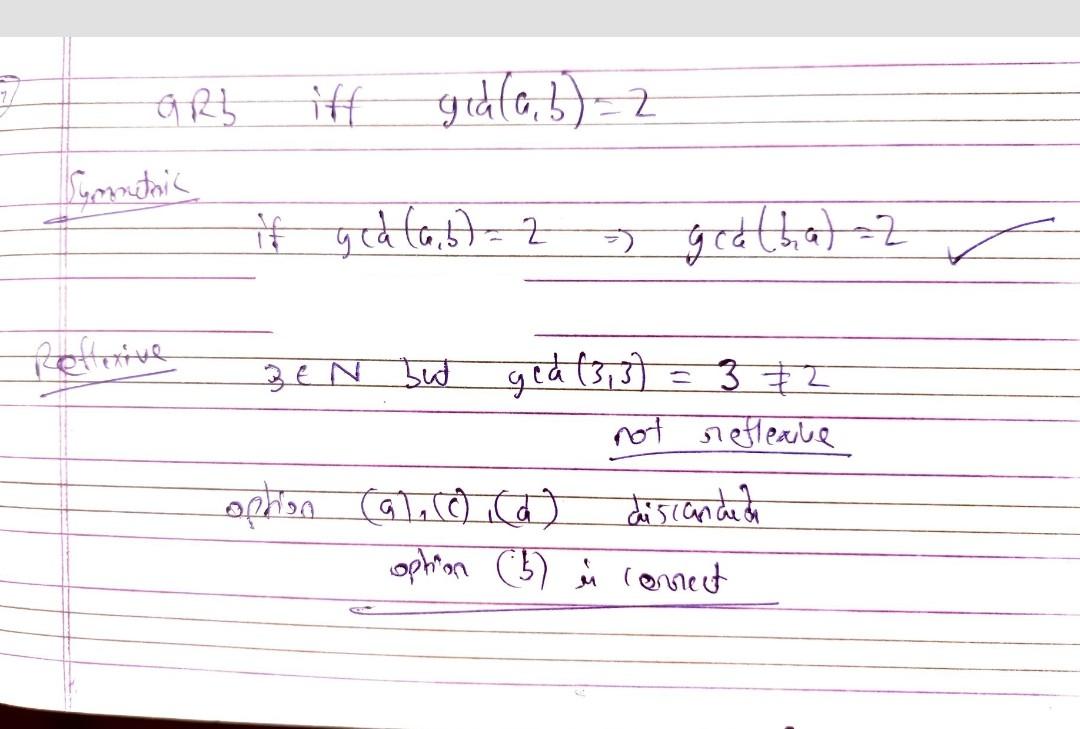 7
aRb iff gcd(a,b)=2
Symmetric
if gcd(a,b)=2 => gcd(b,a)=2 ✓
Reflexive
3 ∈ N but gcd(3,3) = 3 ≠ 2
not reflexive
option (a), (c), (d) discarded
option (b) is correct